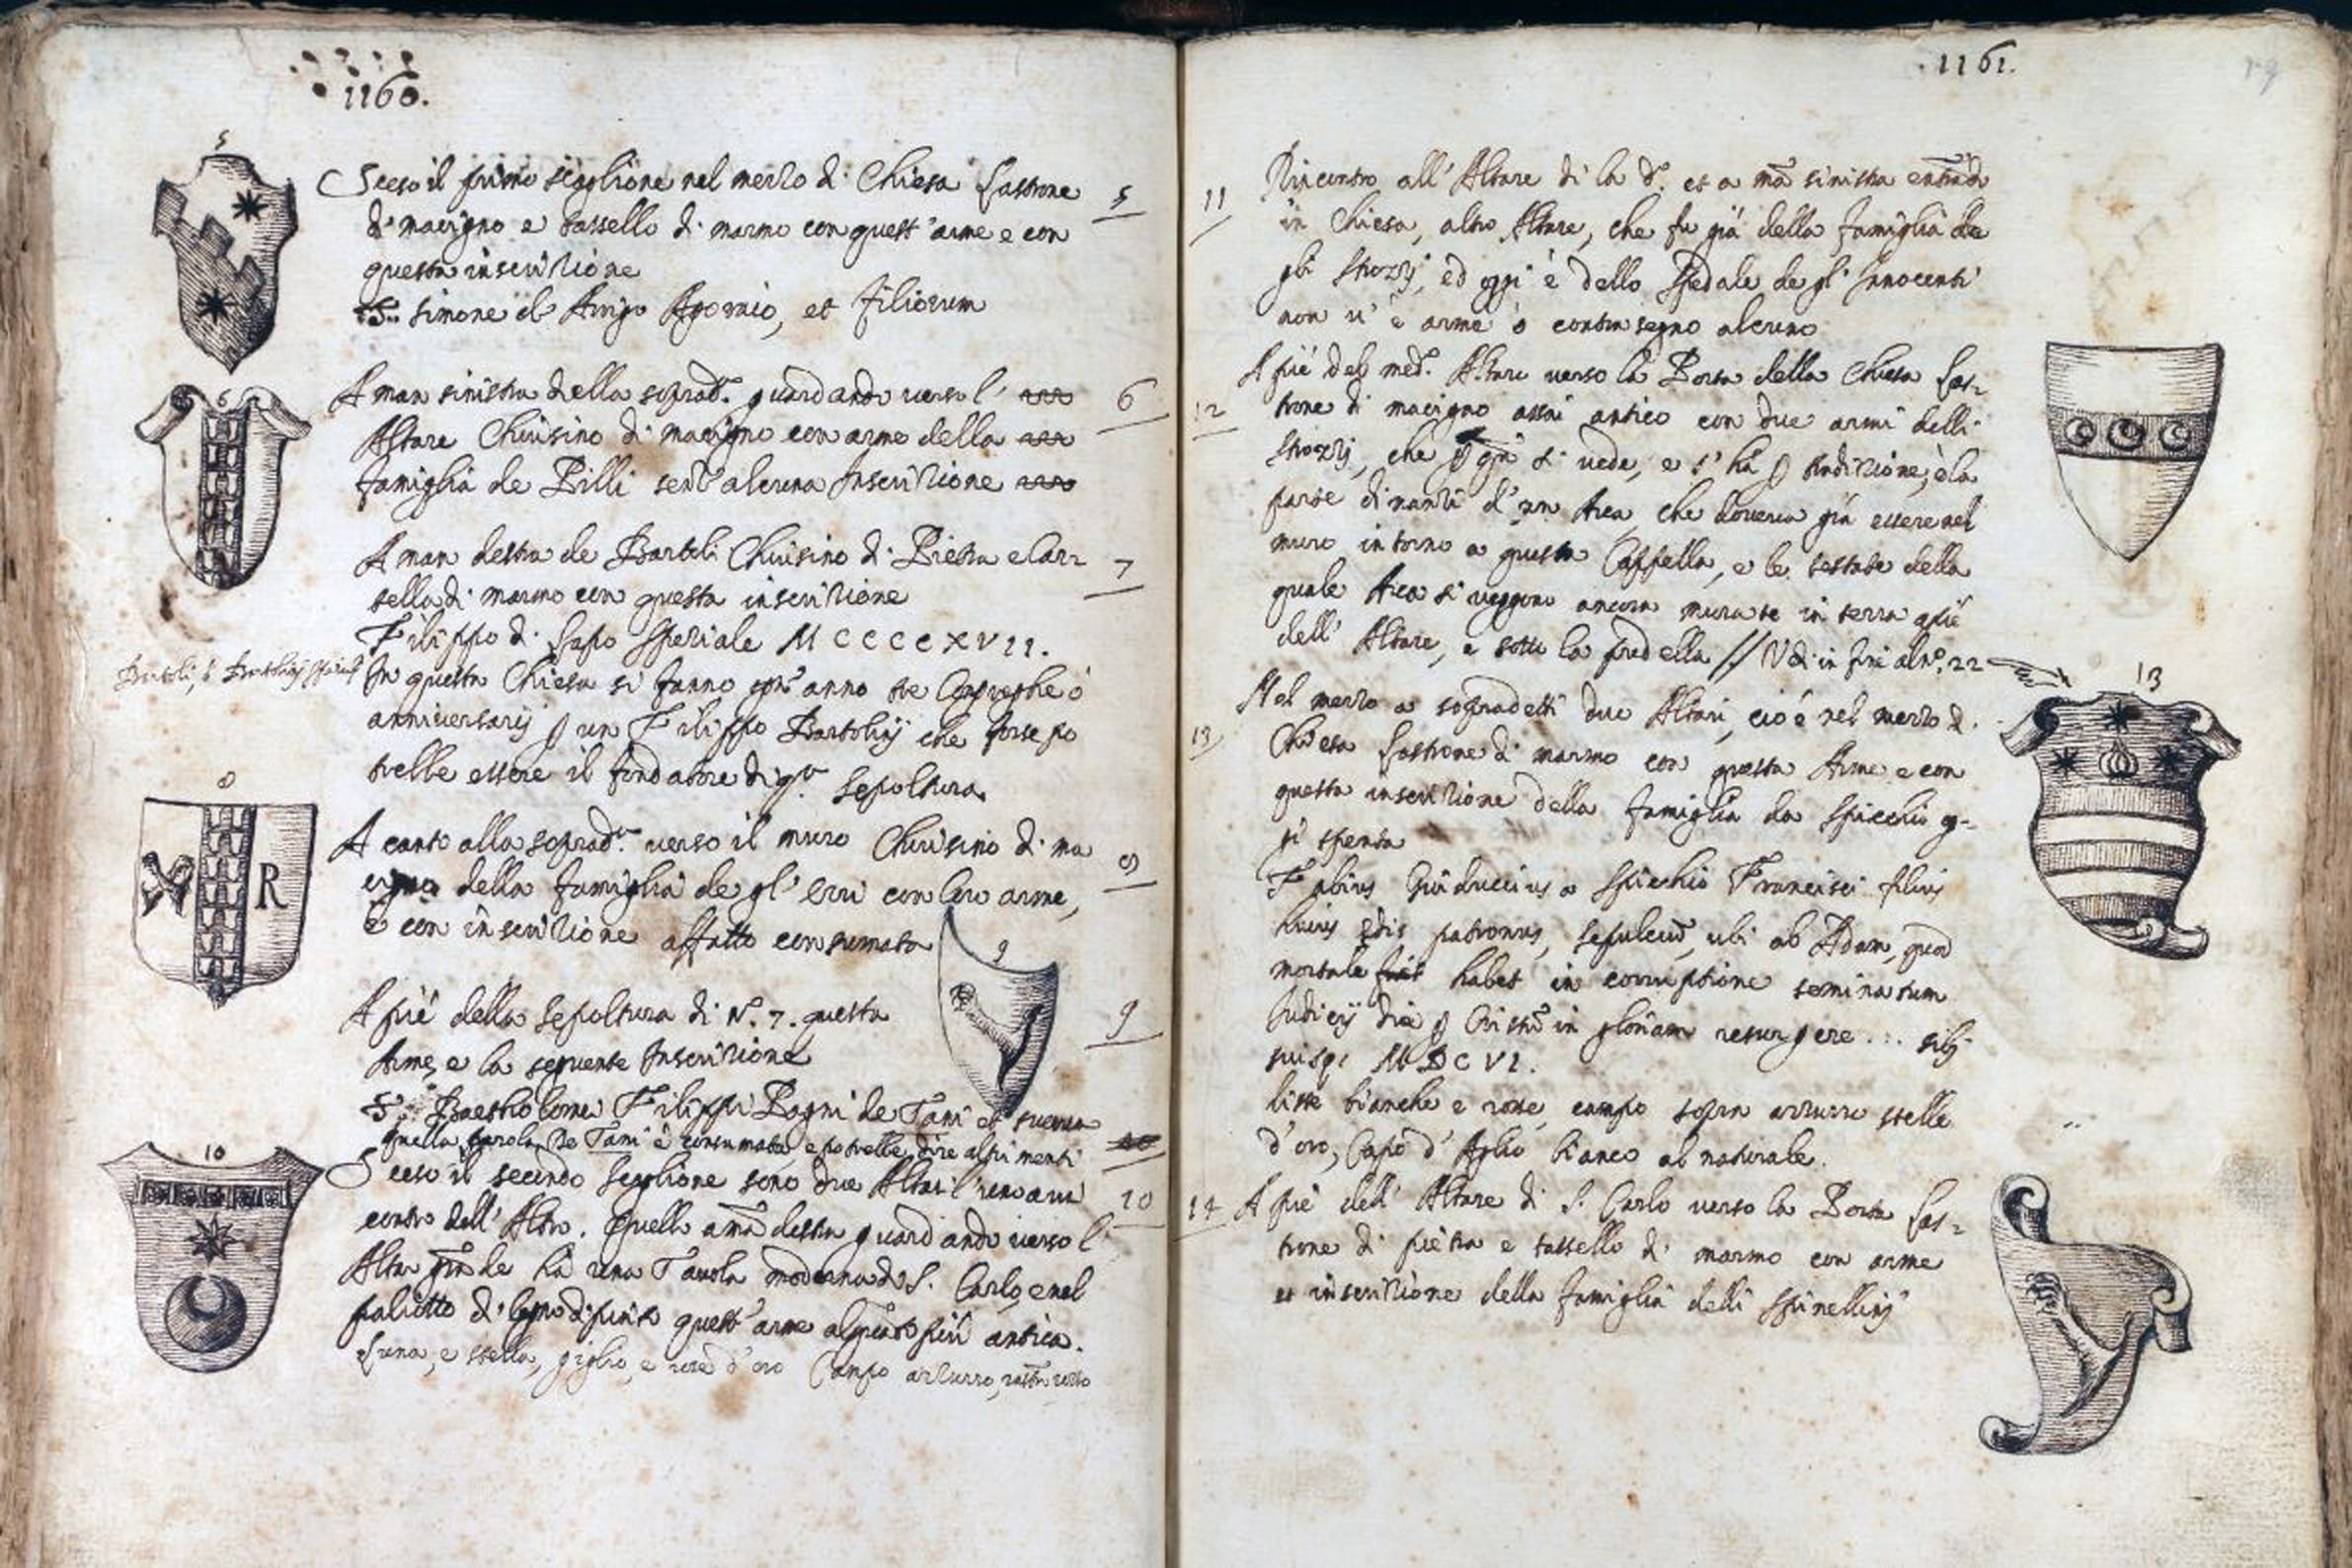 1160.
5
Sceso il primo scaglione nel mezzo di Chiesa lastrone 5
di macigno e tassello di marmo con quest' arme e con
questa inscrizione
S. simone d' Arrigo et filiorum
6
A man sinistra della soprad.ª guardando verso l' 6
Altare Chiusino di macigno con arme della
famiglia de Billi senz' alcuna Inscrizione
A man destra de Bartoli Chiusino di Pietra e Car= 7
tella di marmo con questa inscrizione
Filippo di Lapo speziale M CCCC XVII.
Bartoli, ò Bartolinj
In questa Chiesa si fanno ogn' anno tre ò
anniversarij p un Filippo Bartolinj che forse po
trebbe essere il fondatore di q.ª sepoltura
8
A canto alla soprad.ª verso il muro Chiusino di ma 8
cigno della famiglia de gl' Erri con loro arme,
e con inscrizione affatto consumata
R
9
A piè della sepoltura di N.º 7. questa 9
Arme, e la seguente Inscrizione
S. Bartholomei Filippi Pagni de Tani et suorum
quella parola De Tani è consumata, e potrebbe dire altrimenti
10
Sceso il secondo scaglione sono due Altari l' uno rin 10
contro dell' Altro. Quello a mā destra guardando verso l'
Altar grāde hà una Tavola moderna di S. Carlo, e nel
paliotto di legno dipinto quest' arme alquanto più antica.
Luna, e stella, giglio, e d' oro Campo azzurro, rosso
1161.
11 Rincontro all' Altare di là d.º et a mā sinistra entrādo
in Chiesa, altro Altare, che fu già della famiglia de
gli Strozzj, ed oggi è dello Spedale degl' Innocenti
non v' è arme ò contrasegno alcuno
A piè del med.º Altare verso la Porta della Chiesa las=
12 trone di macigno assai antico con due armi delli
Strozzj, che già si vede, e s' hà p tradizione, è la
parte dinanzi d' un Arca, che doveva già essere nel
muro intorno a questa Cappella, e le testate della
quale Arca si veggono ancora murate in terra a piè
dell' Altare, e sotto la predella // Vedi in fine al nº. 22
13
Nel mezzo a sopradetti due Altari, cioè nel mezzo di
13 Chiesa lastrone di marmo con questa Arme e con
questa inscrizione della famiglia da Spicchio og=
gi spenta
Fabius Guiduccius a Spichio Francisci filius
huius ędis patronus, sepulcrū, ubi ab Adam, quod
mortale habet in corruptione seminatum
Iudicij die p Christū in gloriam resurgere ... sibi
suisq; MDCVI.
liste bianche e rosse, campo sopra azzurro stelle
d' oro, Capo d' Aglio bianco al naturale.
14 A piè dell' Altare di S. Carlo verso la Porta las=
trone di pietra e tassello di marmo con arme
et inscrizione della famiglia delli Spinellinj